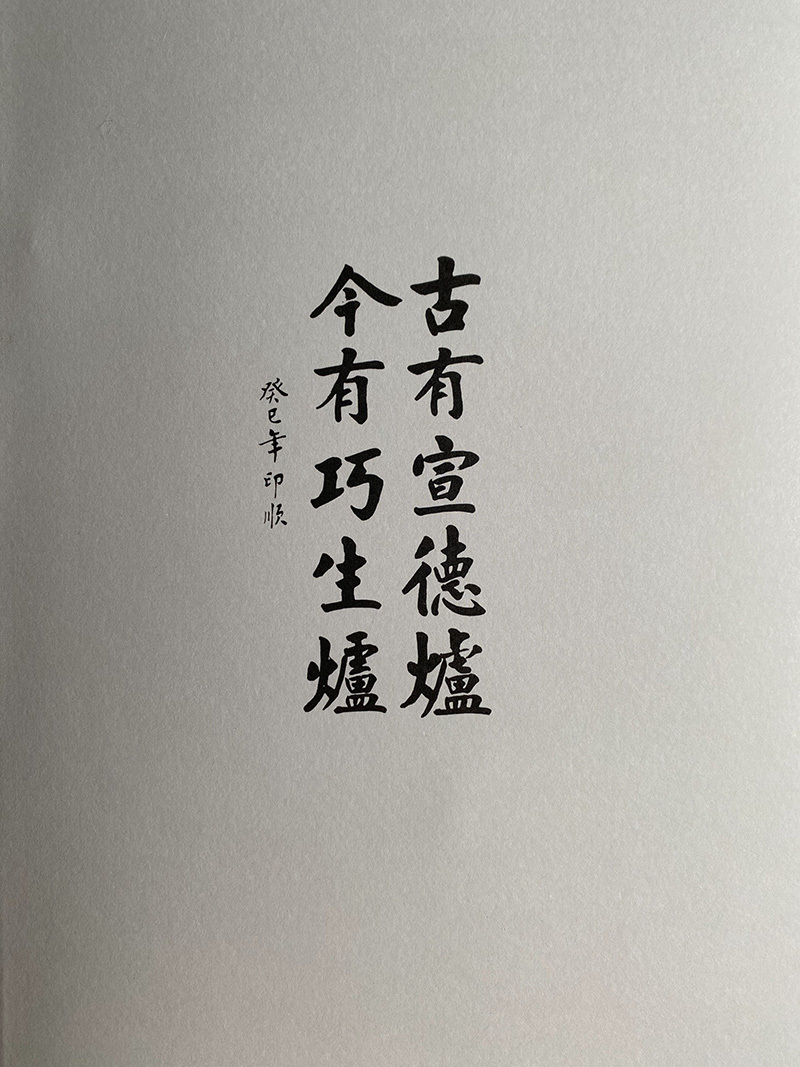 古有宣德爐
今有巧生爐
癸巳年 印順